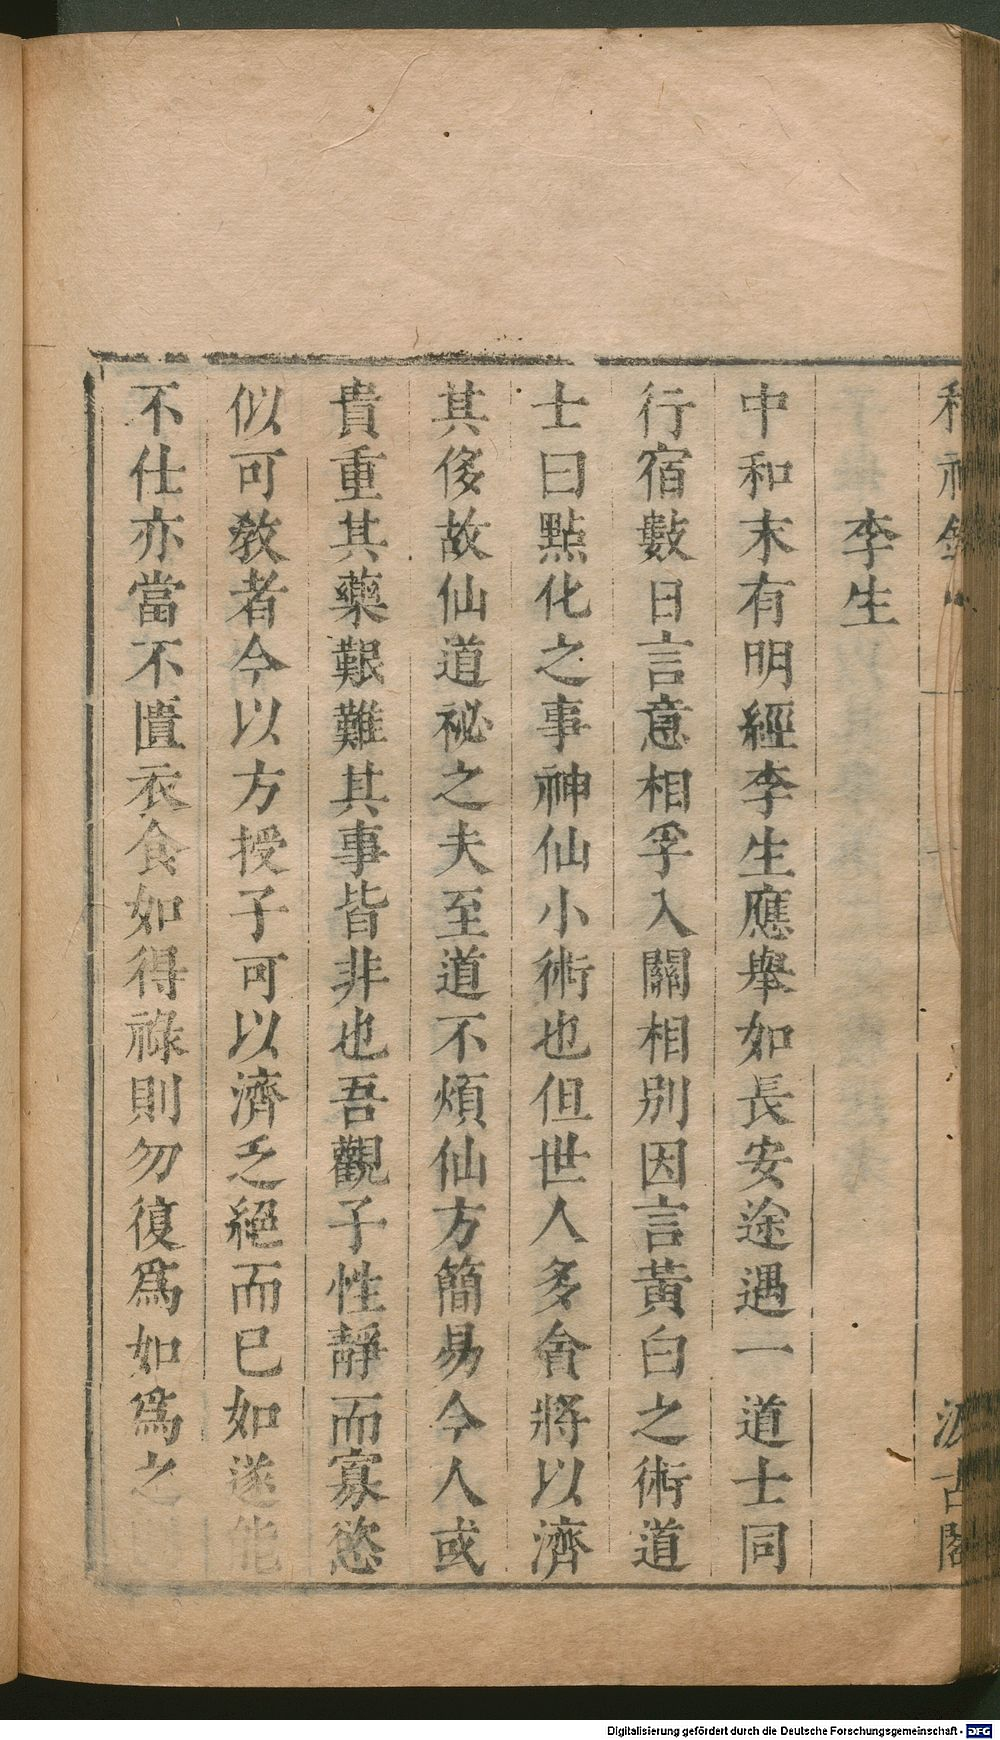 李生
中和末有明經李生應舉如長安途遇一道士同
行宿數日言意相孚入關相別因言黃白之術道
士曰點化之事神仙小術也但世人多貪將以濟
其侈故仙道祕之夫至道不煩仙方簡易今人或
貴重其藥艱難其事皆非也吾觀子性靜而寡慾
似可敎者今以方授子可以濟乏絕而已如遂能
不仕亦當不匱衣食如得祿則勿復爲如爲之
Digitalisierung gefördert durch die Deutsche Forschungsgemeinschaft - DFG